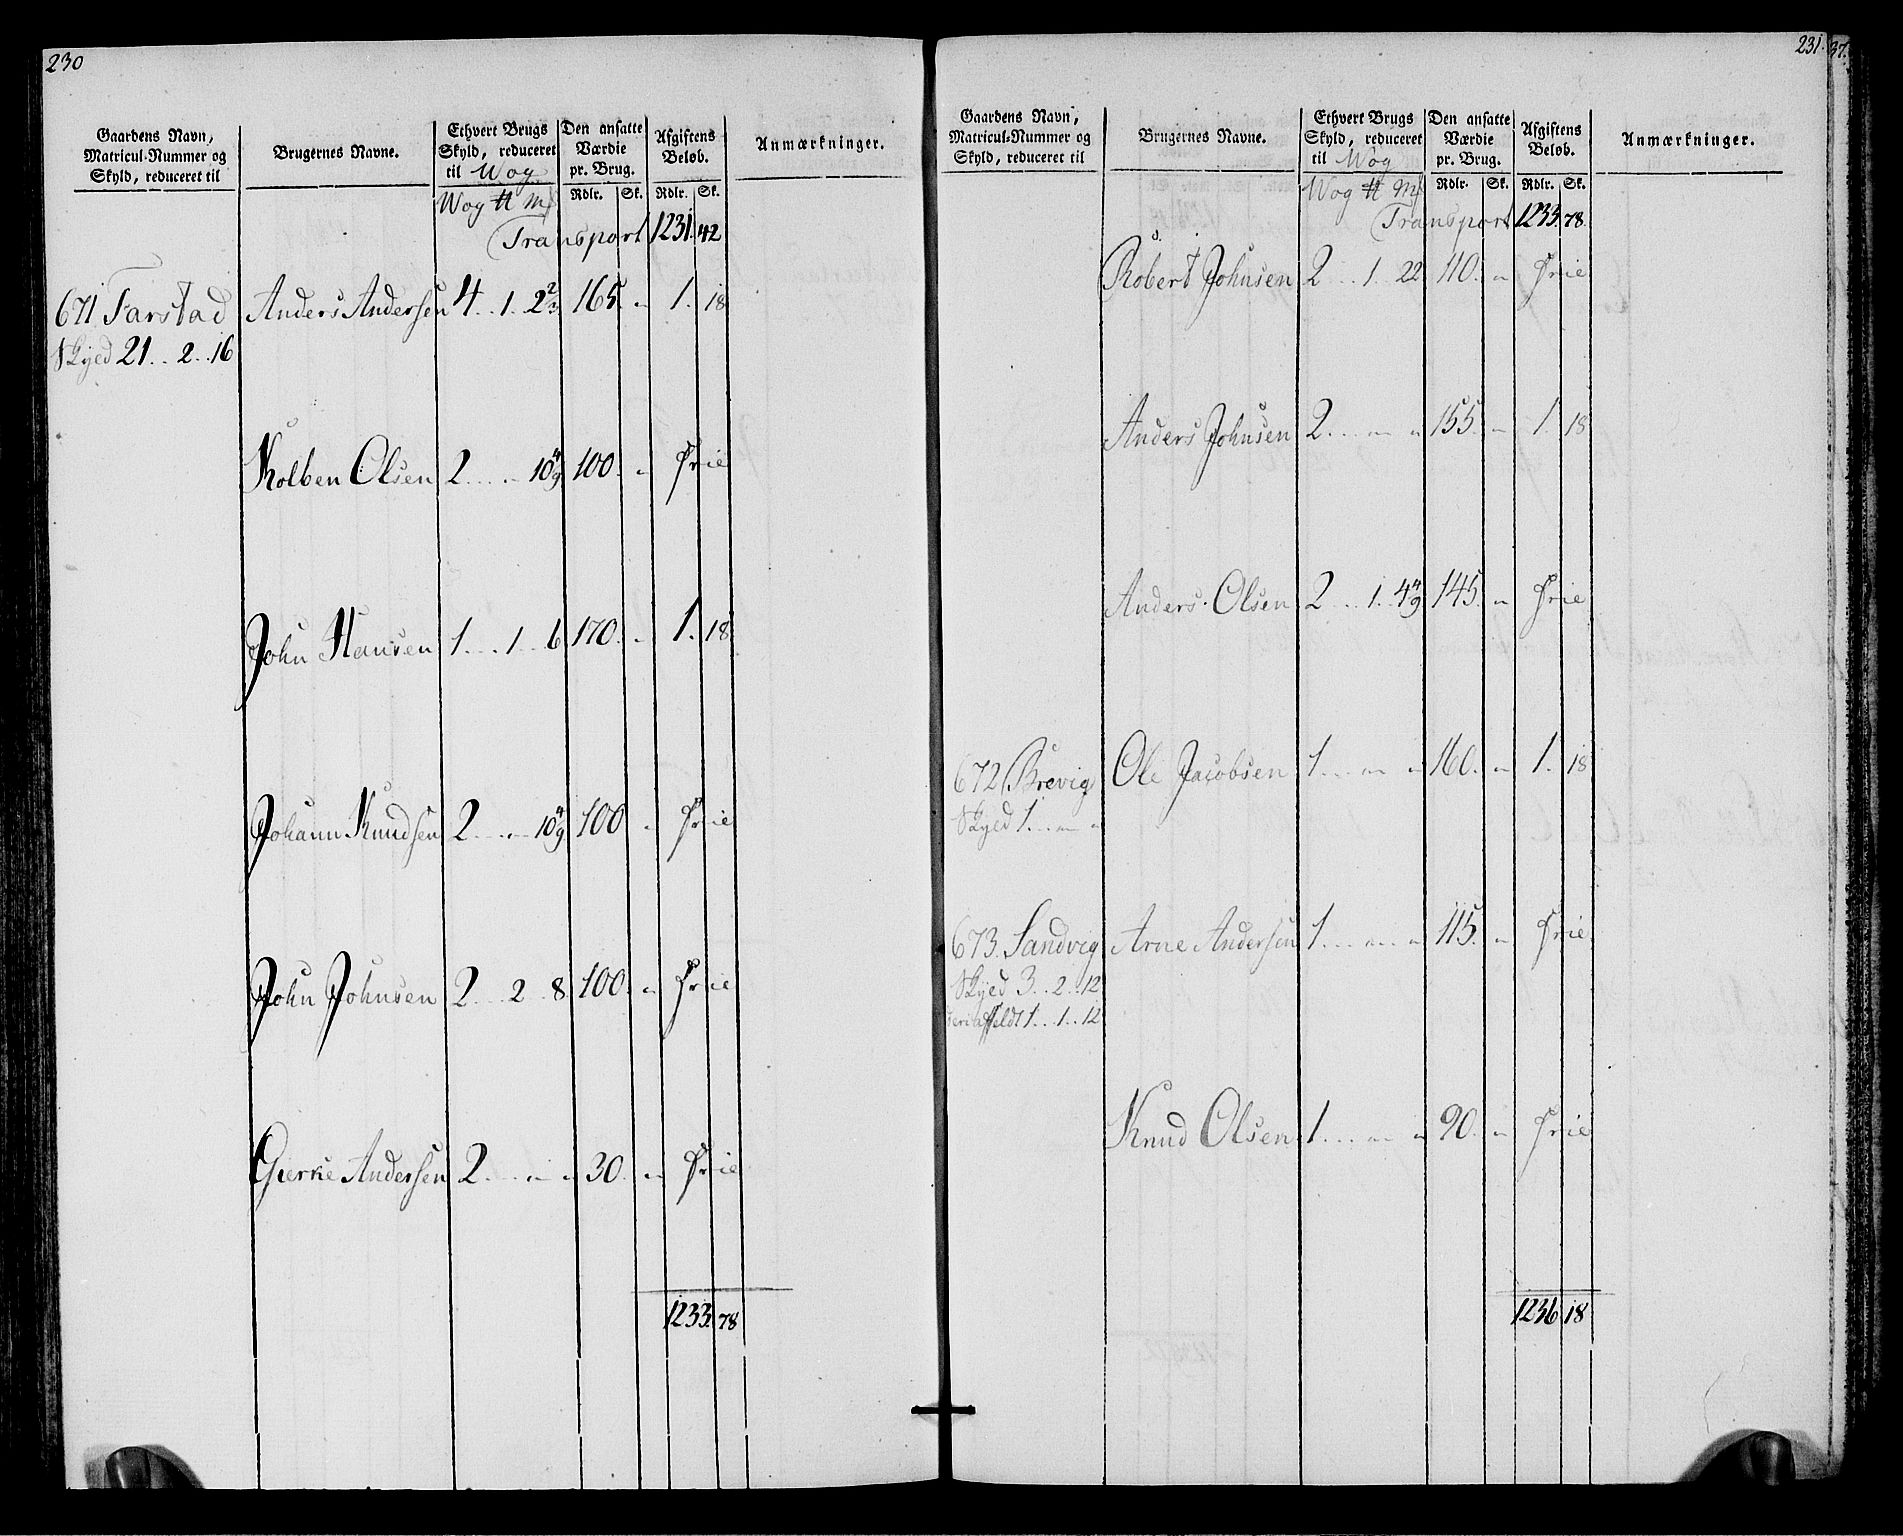 230
Gaardens Navn, Matricul-Nummer og Skyld, reduceret til
Brugernes Navne.
Ethvert Brugs Skyld, reduceret til Wog
Den ansatte Værdie pr. Brug.
Afgiftens Beløb.
Anmærkninger.
Wog ℔ Mk Rdlr. Sk. Rdlr. Sk.
Transport 1231. 42
671 Farstad Anders Andersen 4 . . 1 . 2 2/3 165. „ 1. 18
Skyld 21 . . 2 . . 16
Kolben Olsen 2 . . . „ 10 4/9 100. „ Frie
John Hansen 1 . . . 1 . . 6 170. „ 1. 18
Johann Knudsen 2 . . . „ 10 4/9 100 „ Frie
John Johnsen 2 . . . 2 . . 8 100. „ Frie
Gierke Andersen 2 . . . „ „ 30. „ Frie
1233. 78
231.
37.
Gaardens Navn, Matricul-Nummer og Skyld, reduceret til
Brugernes Navne.
Ethvert Brugs Skyld, reduceret til Wog
Den ansatte Værdie pr. Brug.
Afgiftens Beløb.
Anmærkninger.
Wog ℔ Mk Rdlr. Sk. Rdlr. Sk.
Transport 1233. 78.
Robert Johnsen 2 . . . 1 . 22 110. „ Frie
Anders Johnsen 2 . . . „ „ 155. „ 1. 18
Anders Olsen 2 . . . 1 . 4 4/9 145. „ Frie
672 Brevig Ole Jacobsen 1 . . . „ „ 160. „ 1. 18
Skyld 1 . . . „ „
673. Sandvig Arne Andersen 1 . . . „ „ 115. „ Frie
Skyld 3 . . 2 . . 12
1 . . 1 . . 12
Knud Olsen 1 . . . „ „ 90. „ Frie
1236 18